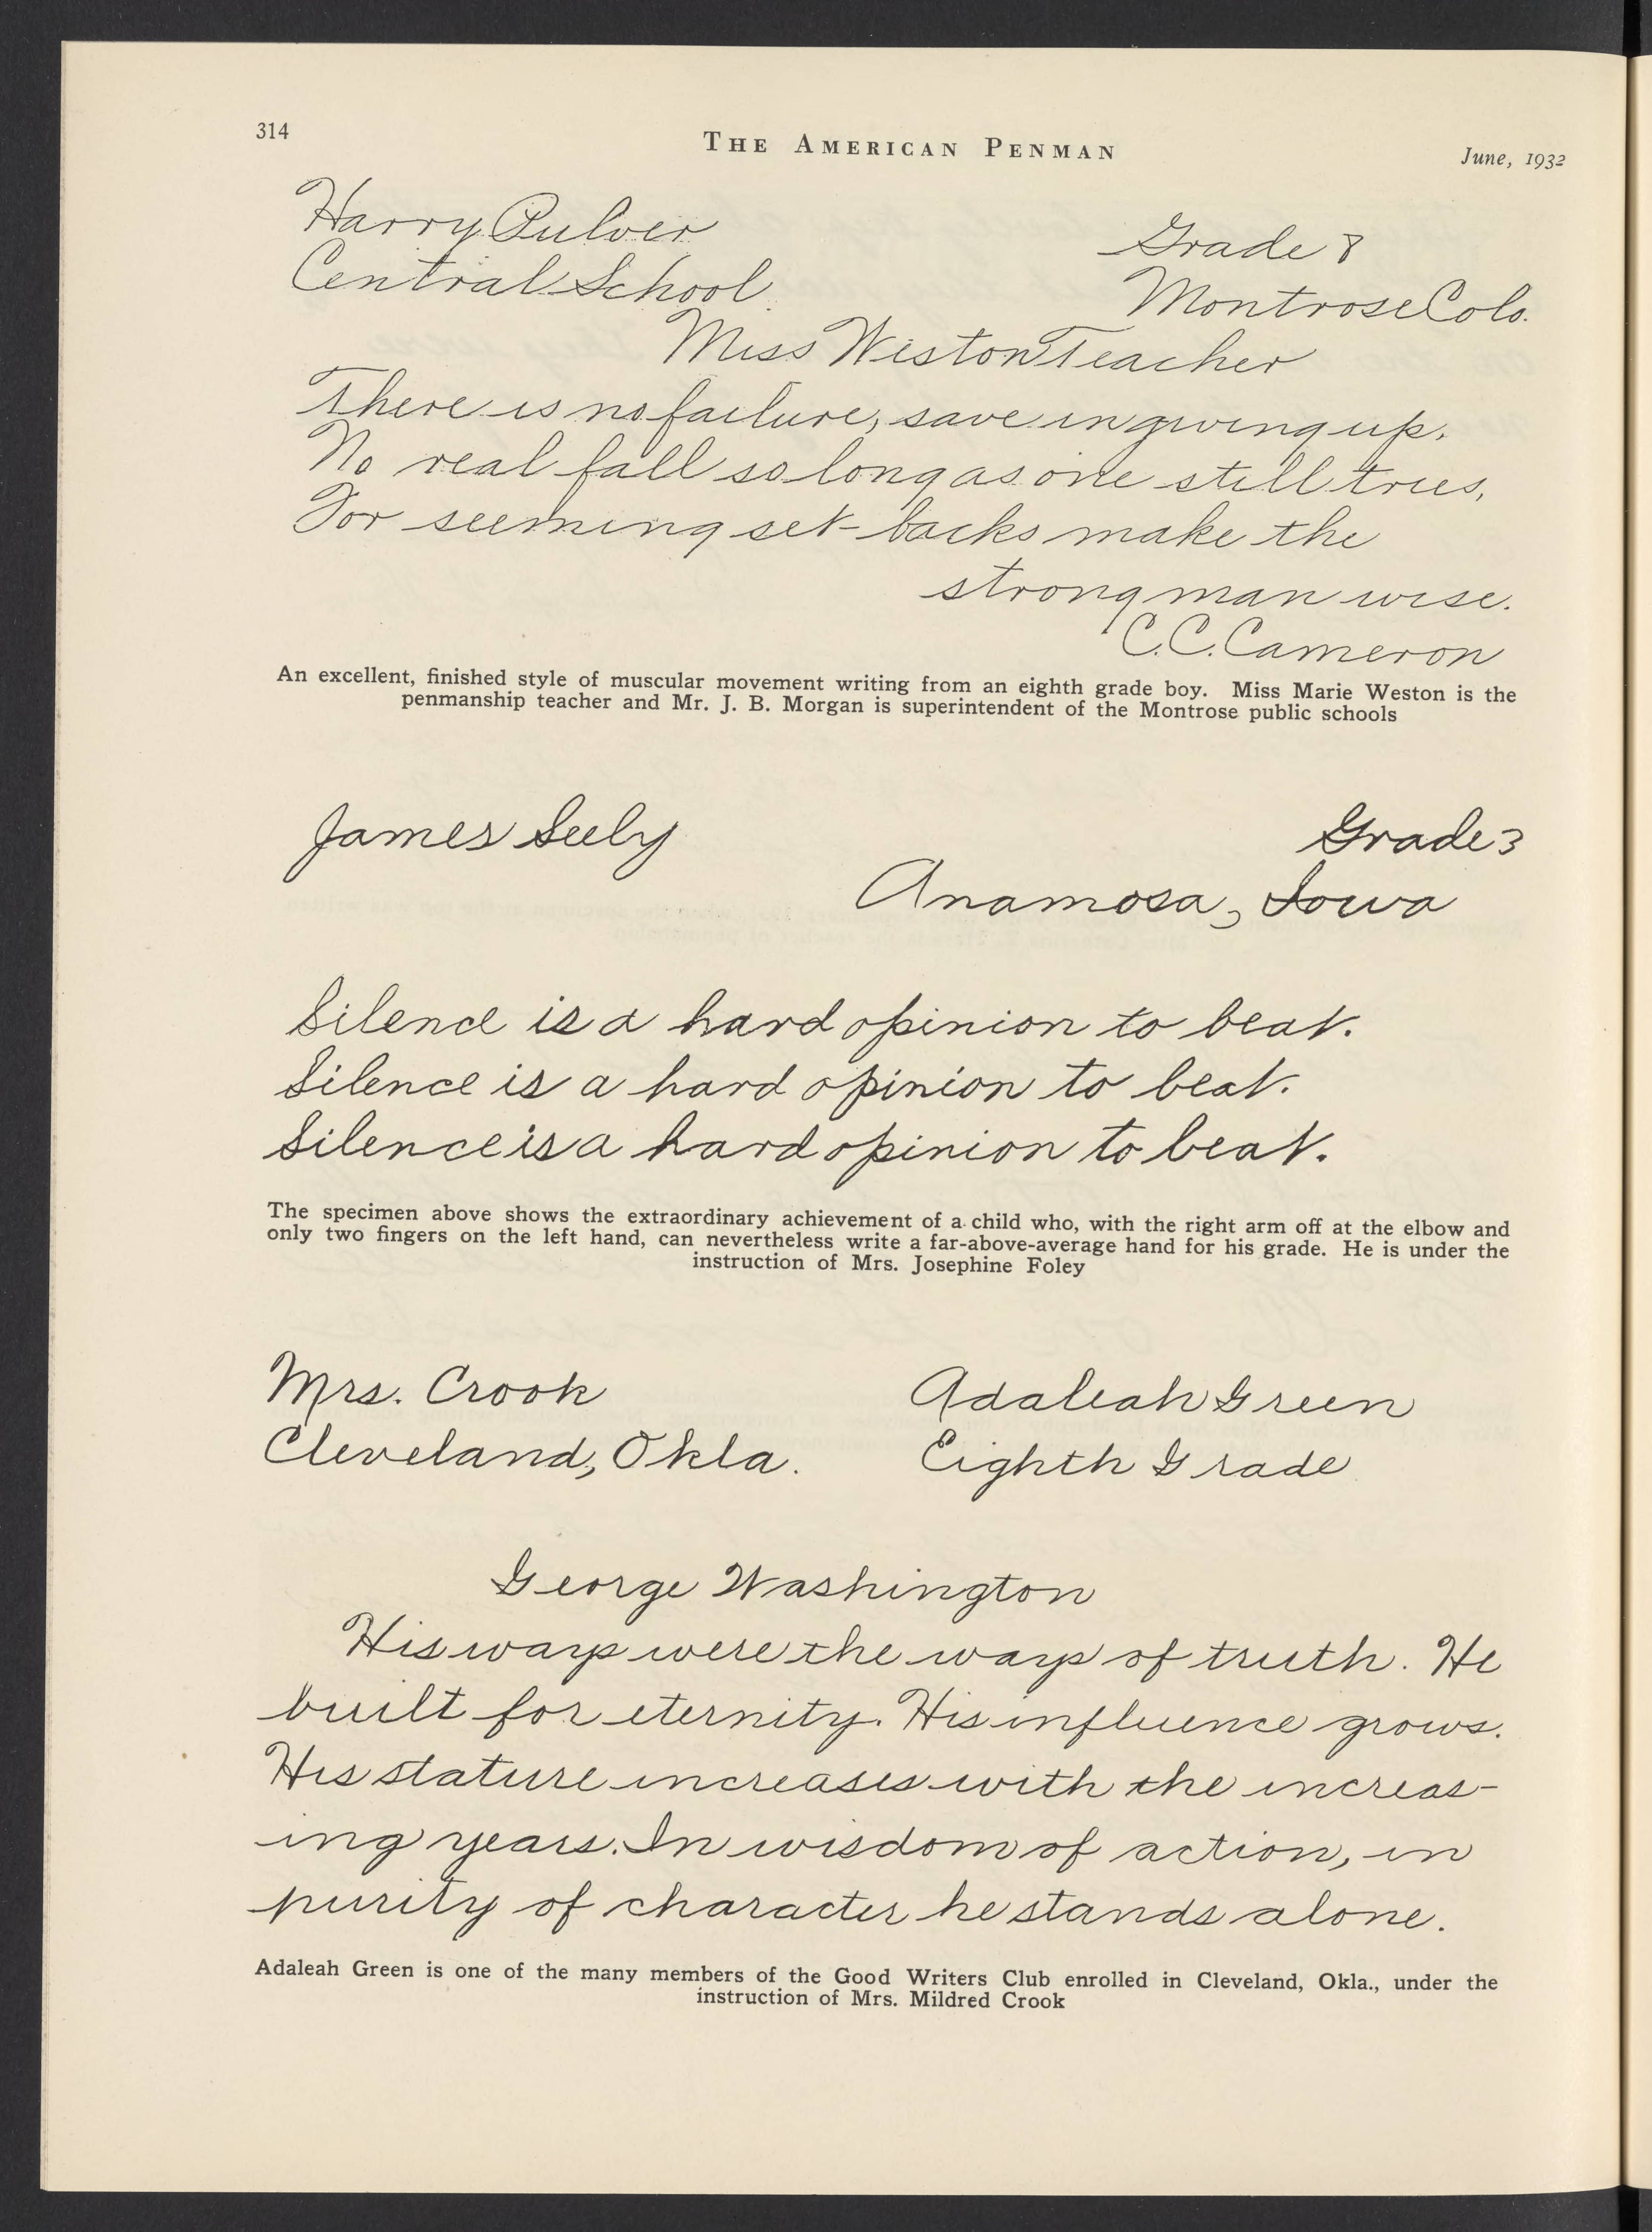 314
THE AMERICAN PENMAN
June, 1932
Harry Pulver
Grade 8
Central School
Montrose Colo.
Miss Weston Teacher
There is no failure, save in giving up.
No real fall so long as one still tries,
For seeming set-backs make the
strong man wise.
C.C. Cameron
An excellent, finished style of muscular movement writing from an eighth grade boy. Miss Marie Weston is the
penmanship teacher and Mr. J. B. Morgan is superintendent of the Montrose public schools
James Seely
Grade 3
Anamosa, Iowa
Silence is a hard opinion to beat.
Silence is a hard opinion to beat.
Silence is a hard opinion to beat.
The specimen above shows the extraordinary achievement of a child who, with the right arm off at the elbow and
only two fingers on the left hand, can nevertheless write a far-above-average hand for his grade. He is under the
instruction of Mrs. Josephine Foley
Mrs. Crook
Adaleah Green
Cleveland, Okla.
Eighth Grade
George Washington
His ways were the ways of truth. He
built for eternity. His influence grows.
His stature increases with the increas-
ing years. In wisdom of action, in
purity of character he stands alone.
Adaleah Green is one of the many members of the Good Writers Club enrolled in Cleveland, Okla., under the
instruction of Mrs. Mildred Crook